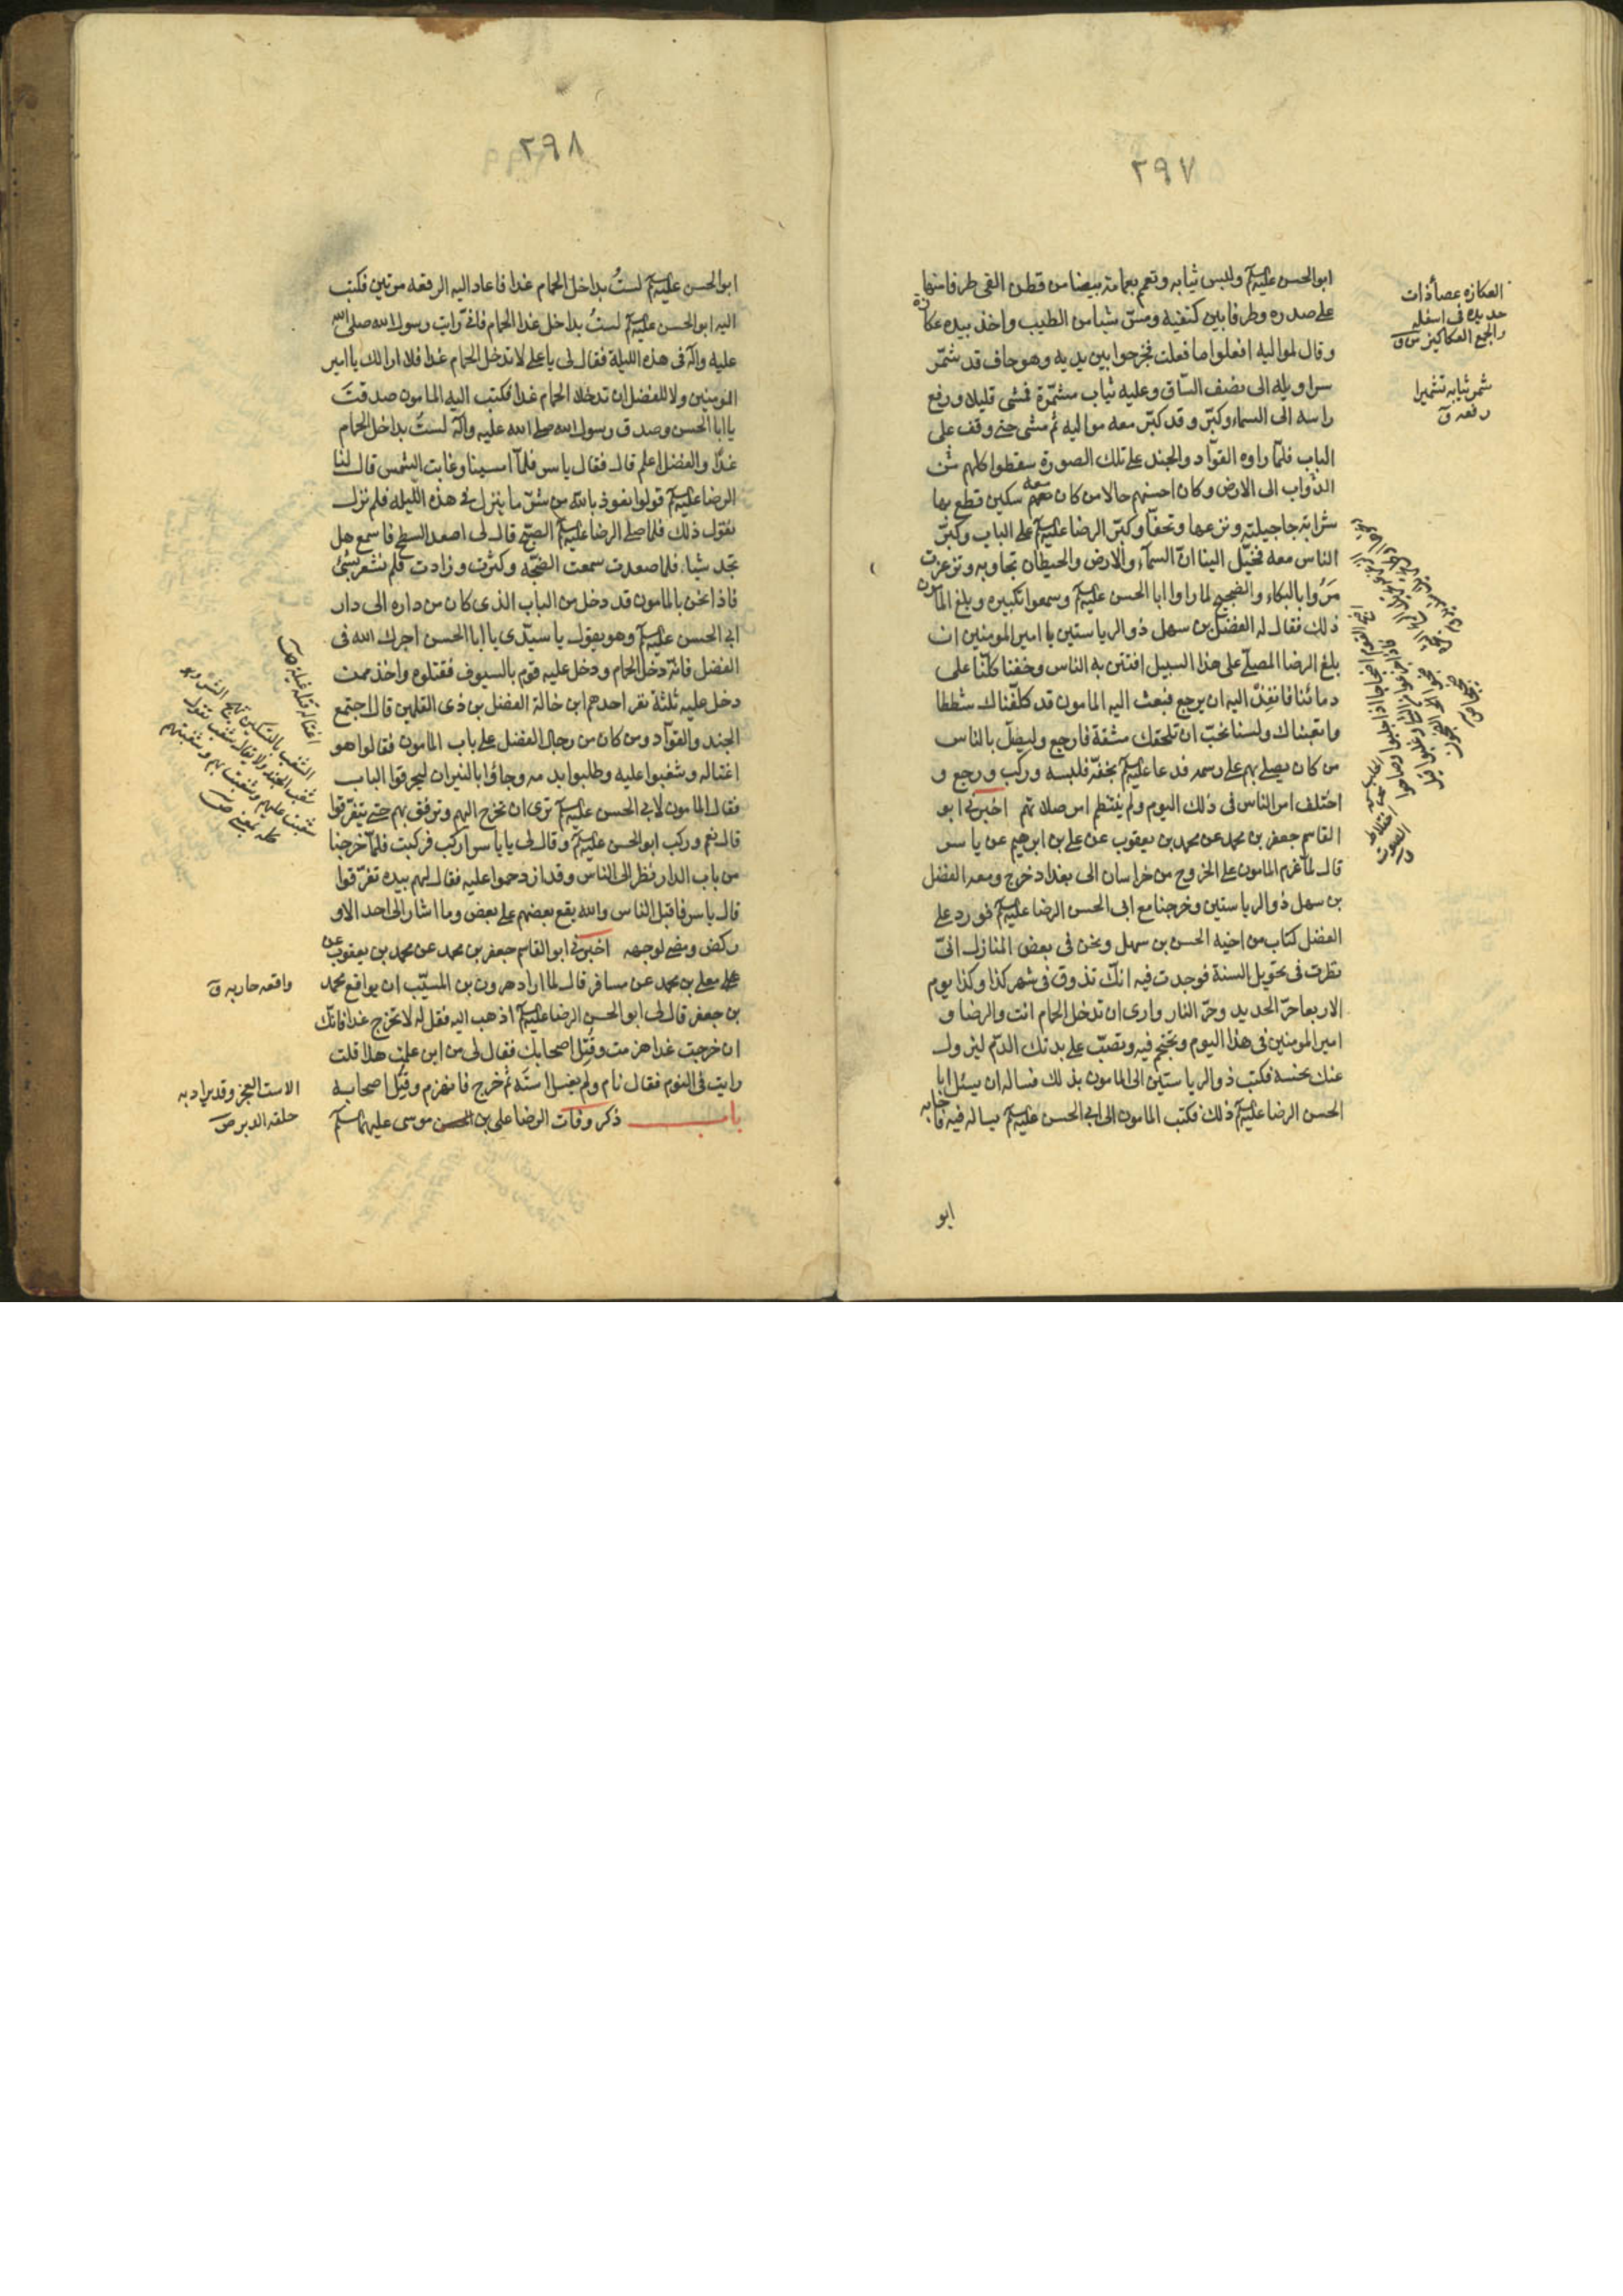 ٢٩٧
ابو الحسن عليه السلم ولبس ثيابه وتعمم بعمامة بيضا من قطن القى طرفا منها
على صدره وطرفا بين كتفيه ومسّ شيا من الطيب واخذ بيده عكازة
وقال لمواليه افعلوا ما فعلت فخرجوا بين يديه وهو حاف قد شمّر
سراويله الى نصف السّاق وعليه ثياب مشمّرة فمشى قليلا ورفع
راسه الى السماء وكبّر وقد كبّر معه مواليه ثم مشى حتى وقف على
الباب فلمّا راوه القوّاد والجند على تلك الصورة سقطوا كلهم عن
الدّواب الى الارض وكان احسنهم حالا من كان معه سكين قطع بها
شرابة جاجيلته ونزعها وتحفّا وكبّر الرضا عليه السلم على الباب وكبّر
الناس معه فخيّل الينا انّ السمآء والارض والحيطان تجاوبه وتزعزعت
مَرْوُ بالبكاء والضجيج لما راوا ابا الحسن عليه السلم وسمعوا تكبيره وبلغ المامون
ذلك فقال له الفضل بن سهل ذو الرياستين يا امير المومنين ان
بلغ الرضا المصلّى على هذا السبيل افتتن به الناس وخفنا كلّنا على
دمائنا فانفِذْ اليه ان يرجع فبعث اليه المامون قد كلّفناك شططا
واتعبناك ولسنا نحبّ ان تلحقك مشقة فارجع وليصلّ بالناس
من كان يصلى بهم على رسمه فدعا عليه السلم بخفّه فلبسه وركب ورجع و
اختلف امر الناس فى ذلك اليوم ولم ينتظم امر صلاتهم اخبرنى ابو
القاسم جعفر بن محمد عن محمد بن يعقوب عن على بن ابرهيم عن ياسر
قال لما عزم المامون على الخروج من خراسان الى بغداد خرج ومعه الفضل
بن سهل ذو الرياستين وخرجنا مع ابى الحسن الرضا عليه السلم فورد على
الفضل كتاب من اخيه الحسن بن سهل ونحن فى بعض المنازل انّى
نظرت فى تحويل السنة فوجدت فيه انّك تذوق فى شهر كذا وكذا يوم
الاربعا حرّ الحديد وحرّ النار وارى ان تدخل الحمام انت والرضا و
امير المومنين فى هذا اليوم وتحتجم فيه وتصبّ على بدنك الدّم ليزول
عنك نحسه فكتب ذو الرياستين الى المامون بذلك فساله ان يسئل ابا
الحسن الرضا عليه السلم ذلك فكتب المامون الى ابى الحسن عليه السلم يساله فيه فاجابه
ابو
العكازه عصا ذات
حديده فى اسفله
والجمع العكاكيز
شمر ثيابه تشميرا
رفعه ق
٢٩٨
ابو الحسن عليه السلم لستُ بداخل الحمام غدا فاعاد اليه الرقعه مرتين فكتب
اليه ابو الحسن عليه السلم لستُ بداخل غدا الحمام فانّى رايت رسول الله صلى الله
عليه وآله فى هذه الليلة فقال لى يا على لا تدخل الحمام غدا فلا ارى لك يا امير
المومنين ولا للفضل ان تدخلا الحمام غدا فكتب اليه المامون صدقتَ
يا ابا الحسن وصدق رسول الله صلى الله عليه وآله لستُ بداخل الحمام
غدًا والفضل اعلم قال فقال ياسر فلمّا امسينا وغابت الشمس قال لنا
الرضا عليه السلم قولوا نعوذ بالله من شرّ ما ينزل فى هذه الليله فلم نزل
نقول ذلك فلما صلى الرضا عليه السلم الصبح قال لى اصعد السطح فاسمع هل
تجد شيا فلما صعدت سمعت الضجّه وكثرت وزادت فلم نشعر بشئ
فاذا نحن بالمامون قد دخل من الباب الذى كان من داره الى دار
ابى الحسن عليه السلم وهو يقول يا سيّدى يا ابا الحسن اجرك الله فى
الفضل فانّه دخل الحمام ودخل عليه قوم بالسيوف فقتلوه واخذ ممن
دخل عليه ثلثة نفر احدهم ابن خالة الفضل بن ذى القلمين قال اجتمع
الجند والقوّاد ومن كان من رجال الفضل على باب المامون فقالوا هو
اغتاله وشغبوا عليه وطلبوا بدمه وجاؤا بالنيران ليحرقوا الباب
فقال المامون لابى الحسن عليه السلم ترى ان تخرج اليهم وترفق بهم حتى يتفرّقوا
قال نعم وركب ابو الحسن عليه السلم وقال لى يا ياسر اركب فركبت فلمّا خرجنا
من باب الدار نظر الى الناس وقد ازدحموا عليه فقال لهم بيده تفرّقوا
قال ياسر فاقبل الناس والله يقع بعضهم على بعض وما اشار الى احد الا و
ركض ومضى لوجهه اخبرنى ابو القاسم جعفر بن محمد عن محمد بن يعقوب عن
معلى بن محمد عن مسافر قال لما اراد هرون بن المسيّب ان يواقع محمد
بن جعفر قال لى ابو الحسن الرضا عليه السلم اذهب اليه فقل له لا تخرج غدا فانّك
ان خرجت غدا هزمت وقُتِل اصحابك فقال لى من اين علمت هذا قلت
رايت فى النوم فقال نام ولم يغسل استَه ثم خرج فانهزم وقُتِل اصحابه
باب ذكر وفات الرضا على بن موسى عليهما السلم
اغتاله قتله غيلة
الشغب بالتسكين تهيج الشر وهو
شغب الجند ولا يقال شغب تقول
شغبت عليهم وشغبت بهم وشغبتهم
كله بمعنى
واقعه حاربه ق
الاست العجز وقد يراد به
حلقة الدبر